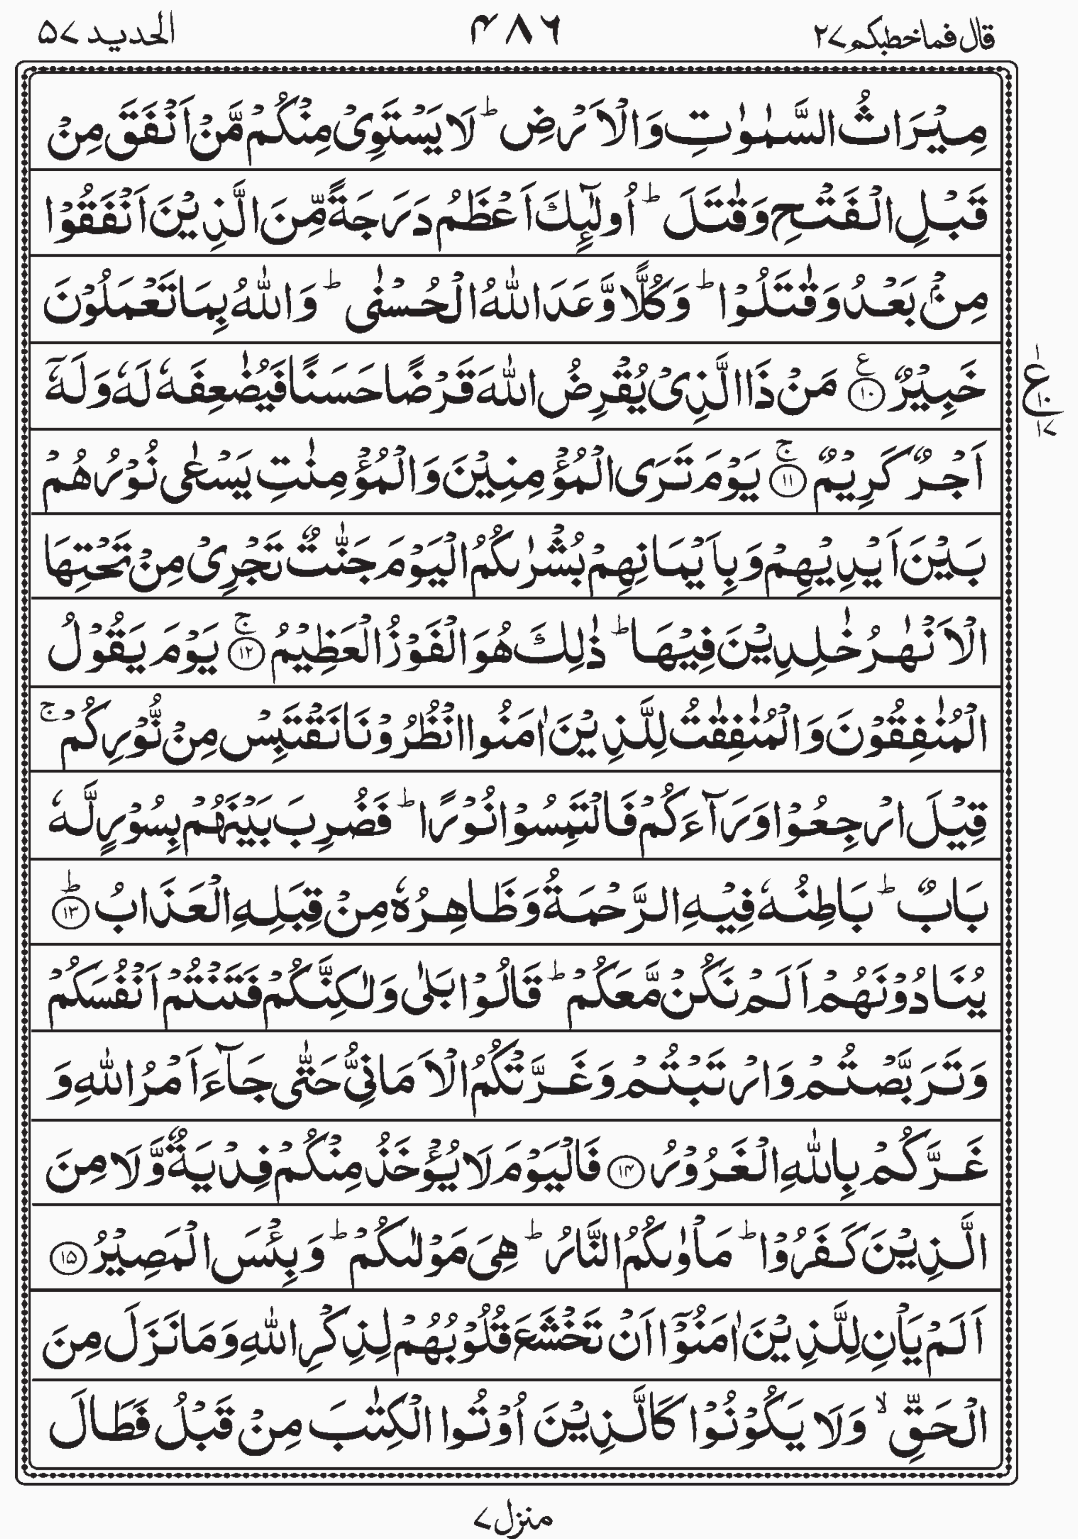 قال فما خطبكم ٢٧
٤٨٦
الحديد ٥٧
مِيْرَاثُ السَّمٰوٰتِ وَالْاَرْضِ ؕ لَا يَسْتَوِىْ مِنْكُمْ مَّنْ اَنْفَقَ مِنْ
قَبْلِ الْفَتْحِ وَقٰتَلَ ؕ اُولٰٓئِكَ اَعْظَمُ دَرَجَةً مِّنَ الَّذِيْنَ اَنْفَقُوْا
مِنْۢ بَعْدُ وَقٰتَلُوْا ؕ وَكُلًّا وَّعَدَ اللّٰهُ الْحُسْنٰى ؕ وَاللّٰهُ بِمَا تَعْمَلُوْنَ
خَبِيْرٌ ۧ‏ ﴿۱۰﴾ مَنْ ذَا الَّذِىْ يُقْرِضُ اللّٰهَ قَرْضًا حَسَنًا فَيُضٰعِفَهٗ لَهٗ وَلَهٗۤ
١
ع
١٠
١٧
اَجْرٌ كَرِيْمٌ ۚ‏ ﴿۱۱﴾ يَوْمَ تَرَى الْمُؤْمِنِيْنَ وَالْمُؤْمِنٰتِ يَسْعٰى نُوْرُهُمْ
بَيْنَ اَيْدِيْهِمْ وَبِاَيْمَانِهِمْ بُشْرٰىكُمُ الْيَوْمَ جَنّٰتٌ تَجْرِىْ مِنْ تَحْتِهَا
الْاَنْهٰرُ خٰلِدِيْنَ فِيْهَا ؕ ذٰلِكَ هُوَ الْفَوْزُ الْعَظِيْمُ ۚ‏ ﴿۱۲﴾ يَوْمَ يَقُوْلُ
الْمُنٰفِقُوْنَ وَالْمُنٰفِقٰتُ لِلَّذِيْنَ اٰمَنُوا انْظُرُوْنَا نَقْتَبِسْ مِنْ نُّوْرِكُمْ ۚ
قِيْلَ ارْجِعُوْا وَرَآءَكُمْ فَالْتَمِسُوْا نُوْرًا ؕ فَضُرِبَ بَيْنَهُمْ بِسُوْرٍ لَّهٗ
بَابٌ ؕ بَاطِنُهٗ فِيْهِ الرَّحْمَةُ وَظَاهِرُهٗ مِنْ قِبَلِهِ الْعَذَابُ ؕ‏ ﴿۱۳﴾
يُنَادُوْنَهُمْ اَلَمْ نَكُنْ مَّعَكُمْ ؕ قَالُوْا بَلٰى وَلٰكِنَّكُمْ فَتَنْتُمْ اَنْفُسَكُمْ
وَتَرَبَّصْتُمْ وَارْتَبْتُمْ وَغَرَّتْكُمُ الْاَمَانِىُّ حَتّٰى جَآءَ اَمْرُ اللّٰهِ وَ
غَرَّكُمْ بِاللّٰهِ الْغَرُوْرُ‏ ﴿۱۴﴾ فَالْيَوْمَ لَا يُؤْخَذُ مِنْكُمْ فِدْيَةٌ وَّلَا مِنَ
الَّذِيْنَ كَفَرُوْا ؕ مَاْوٰىكُمُ النَّارُ ؕ هِىَ مَوْلٰىكُمْ ؕ وَبِئْسَ الْمَصِيْرُ‏ ﴿۱۵﴾
اَلَمْ يَاْنِ لِلَّذِيْنَ اٰمَنُوْۤا اَنْ تَخْشَعَ قُلُوْبُهُمْ لِذِكْرِ اللّٰهِ وَمَا نَزَلَ مِنَ
الْحَقِّ ۙ وَلَا يَكُوْنُوْا كَالَّذِيْنَ اُوْتُوا الْكِتٰبَ مِنْ قَبْلُ فَطَالَ
منزل ٧